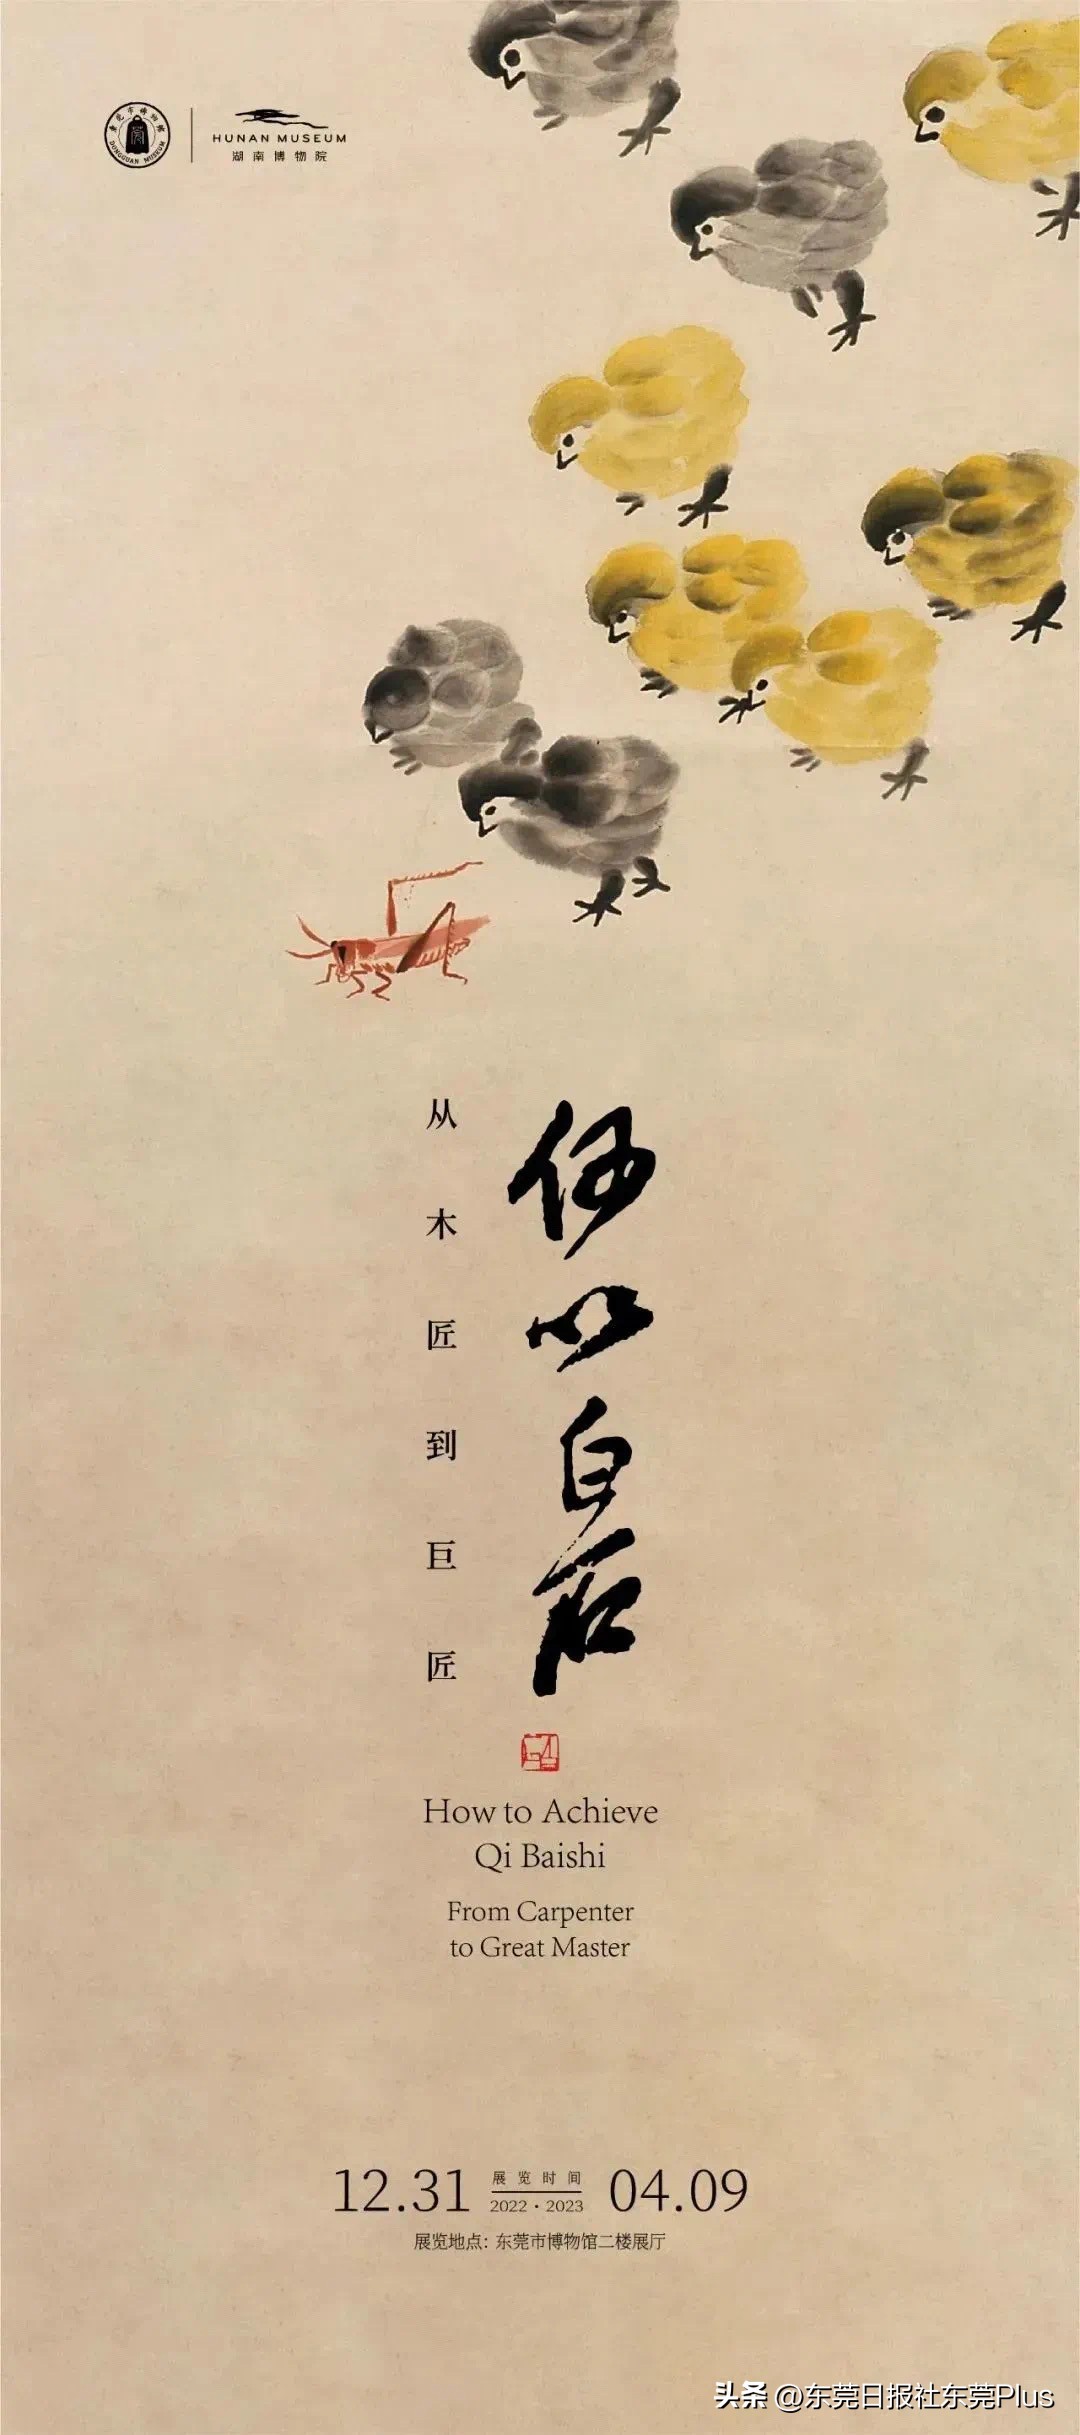 东莞市博物馆
DONGGUAN MUSEUM
HUNAN MUSEUM
湖南博物院
何以白石
从木匠到巨匠
How to Achieve
Qi Baishi
From Carpenter
to Great Master
12.31 展览时间 04.09
2022·2023
展览地点：东莞市博物馆二楼展厅
头条 @东莞日报社东莞Plus